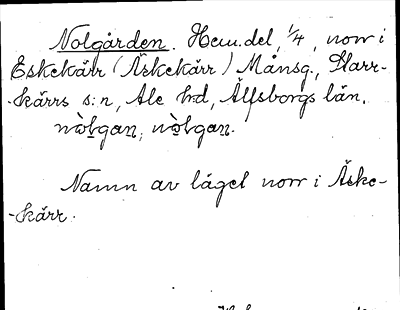 Nolgården. Hem.del, 1/4, norr i
Eskekärr (Äskekärr) Månsg., Starr-
-kärrs s:n, Ale hd, Älfsborgs län.
nòlgan, nòlgan.
Namn av läget norr i Äske-
-kärr.